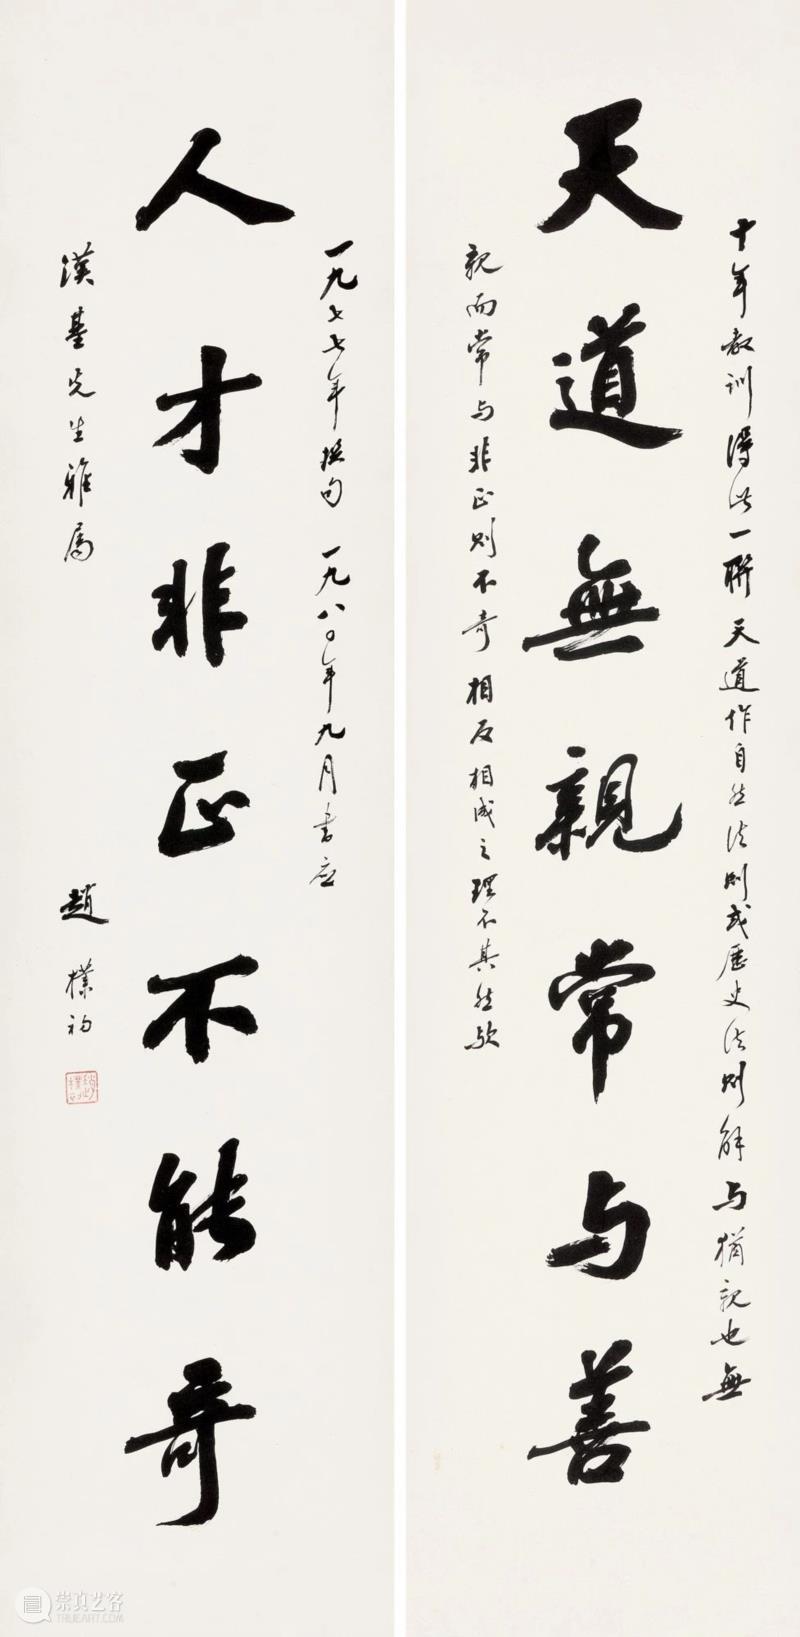 十年教训得此一联天道作自然法则或歷史法则解与猶親也無
天道無親常与善
親而常与非正则不奇相反相成之理不其然歟
一九七七年撰句 一九八〇年九月書应
人才非正不能奇
漢基先生雅属
趙樸初
趙樸初
崇真艺客
TRUEART.COM